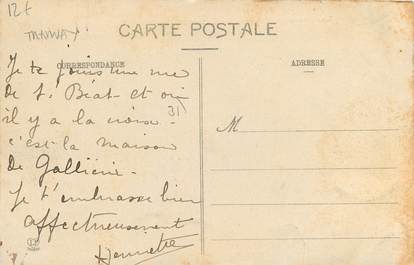 12 €
TRAMWAY
CARTE POSTALE
CORRESPONDANCE
ADRESSE
Je te joins une vue
de St Béat - et où
31
il y a la croix -
c'est la maison
de Galliéni -
Je t'embrasse bien
affectueusement
M